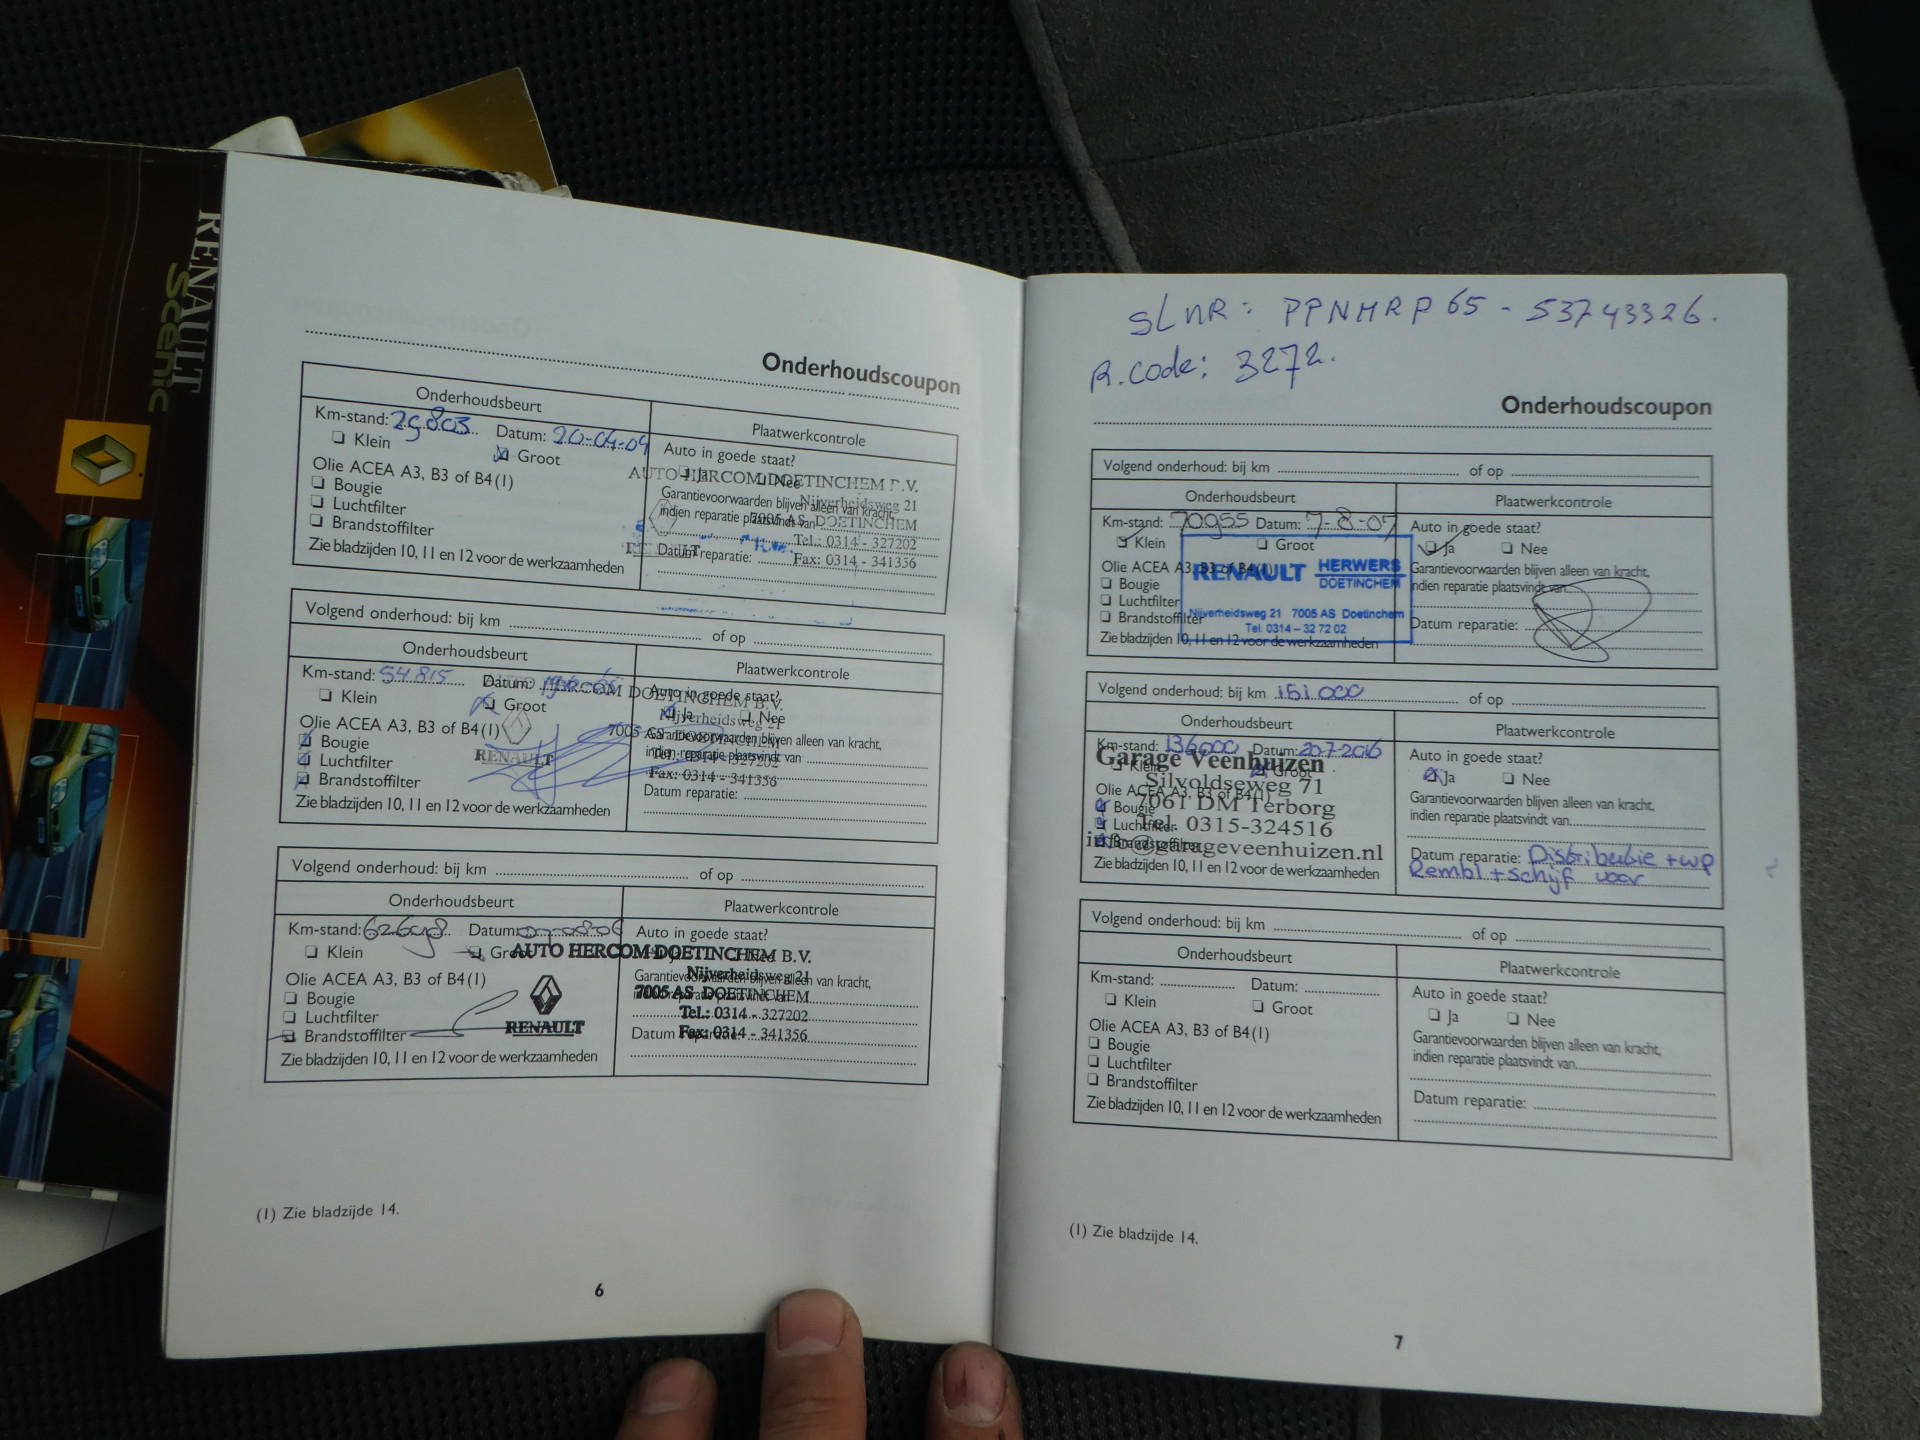 RENAULT
Scenic
Onderhoudscoupon
Onderhoudsbeurt
Plaatwerkcontrole
Km-stand: 29803 Datum: 20-04-04
Klein Groot
Olie ACEA A3, B3 of B4(1)
Bougie
Luchtfilter
Brandstoffilter
Zie bladzijden 10, 11 en 12 voor de werkzaamheden
Auto in goede staat?
Ja Nee
Garantievoorwaarden blijven alleen van kracht,
indien reparatie plaatsvindt van
Datum reparatie:
AUTO HERCOM DOETINCHEM B.V.
Nijverheidsweg 21
7005 AS DOETINCHEM
Tel.: 0314 - 327202
Fax: 0314 - 341356
RENAULT
Volgend onderhoud: bij km of op
Onderhoudsbeurt
Plaatwerkcontrole
Km-stand: 54.815 Datum:
Klein Groot
Olie ACEA A3, B3 of B4(1)
Bougie
Luchtfilter
Brandstoffilter
Zie bladzijden 10, 11 en 12 voor de werkzaamheden
Auto in goede staat?
Ja Nee
Garantievoorwaarden blijven alleen van kracht,
indien reparatie plaatsvindt van
Datum reparatie:
AUTO HERCOM DOETINCHEM B.V.
Nijverheidsweg 21
7005 AS DOETINCHEM
Tel.: 0314 - 327202
Fax: 0314 - 341356
RENAULT
Volgend onderhoud: bij km of op
Onderhoudsbeurt
Plaatwerkcontrole
Km-stand: Datum:
Klein Groot
Olie ACEA A3, B3 of B4(1)
Bougie
Luchtfilter
Brandstoffilter
Zie bladzijden 10, 11 en 12 voor de werkzaamheden
Auto in goede staat?
Garantievoorwaarden blijven alleen van kracht,
Datum reparatie:
AUTO HERCOM DOETINCHEM B.V.
Nijverheidsweg 21
7005 AS DOETINCHEM
Tel.: 0314 - 327202
Fax: 0314 - 341356
RENAULT
(1) Zie bladzijde 14.
6
SLNR: PPNMRP65 - 53743326.
R.code: 3272.
Onderhoudscoupon
Volgend onderhoud: bij km of op
Onderhoudsbeurt
Plaatwerkcontrole
Km-stand: 70955 Datum: 7-8-07
Klein Groot
Olie ACEA A3, B3 of B4(1)
Bougie
Luchtfilter
Brandstoffilter
Zie bladzijden 10, 11 en 12 voor de werkzaamheden
RENAULT HERWERS
DOETINCHEM
Nijverheidsweg 21 7005 AS Doetinchem
Tel. 0314 - 32 72 02
Auto in goede staat?
Ja Nee
Garantievoorwaarden blijven alleen van kracht,
indien reparatie plaatsvindt van
Datum reparatie:
Volgend onderhoud: bij km 151.000 of op
Onderhoudsbeurt
Plaatwerkcontrole
Km-stand: 136000 Datum: 20-7-2016
Klein Groot
Olie ACEA A3, B3 of B4(1)
Bougie
Luchtfilter
Brandstoffilter
Zie bladzijden 10, 11 en 12 voor de werkzaamheden
Garage Veenhuizen
Silvoldseweg 71
7061 DM Terborg
Tel. 0315-324516
info@garageveenhuizen.nl
Auto in goede staat?
Ja Nee
Garantievoorwaarden blijven alleen van kracht,
indien reparatie plaatsvindt van
Datum reparatie: Distributie + wp
Rembl + schijf voor
Volgend onderhoud: bij km of op
Onderhoudsbeurt
Plaatwerkcontrole
Km-stand: Datum:
Klein Groot
Olie ACEA A3, B3 of B4(1)
Bougie
Luchtfilter
Brandstoffilter
Zie bladzijden 10, 11 en 12 voor de werkzaamheden
Auto in goede staat?
Ja Nee
Garantievoorwaarden blijven alleen van kracht,
indien reparatie plaatsvindt van
Datum reparatie:
(1) Zie bladzijde 14.
7